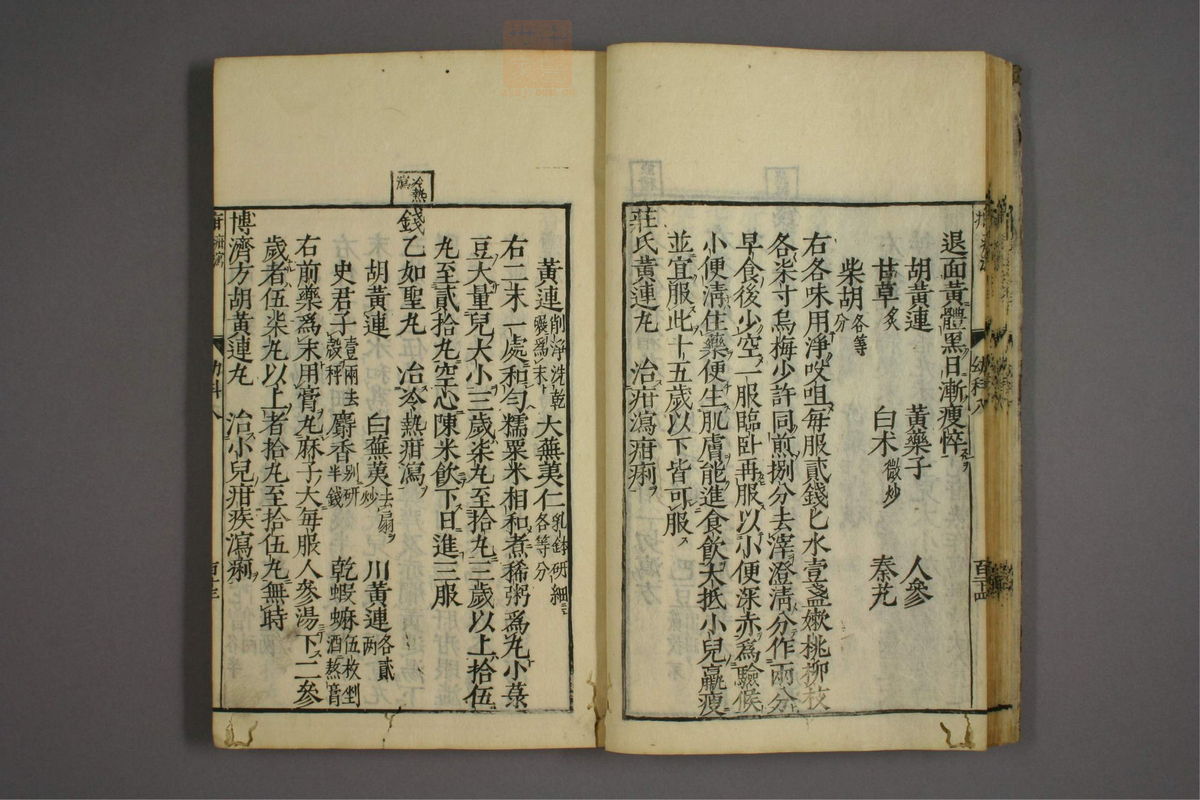 退面黃體黑日漸瘦悴
胡黃連 黃藥子 人參
甘草炙 白术微炒 秦艽
柴胡各等分
右各味用淨㕮咀每服貳錢匕水壹盞嫰桃柳枝
各柒寸烏梅少許同煎捌分去滓澄清分作兩分
早食後少空一服臨卧再服以小便深赤爲驗候
小便清住藥便生肌膚能進食飲大抵小兒羸瘦
並宜服此十五歲以下皆可服
莊氏黃連丸 治疳瀉疳痢
幼科八
百二十四
黃連削淨洗乾碾爲末 大蕪荑仁乳鉢研細各等分
右二末一處和勻糯粟米相和煮稀粥爲丸小菉
豆大量兒大小三歲柒丸至拾丸三歲以上拾伍
丸至貳拾丸空心陳米飲下日進三服
冷熱瀉
錢乙如聖丸 治冷熱疳瀉
胡黃連 白蕪荑去扇炒 川黃連各貳兩
史君子壹兩去殼秤 麝香别研半錢 乾蝦蟆伍枚剉酒熬膏
右前藥爲末用膏丸麻子大每服人參湯下二參
歲者伍柒丸以上者拾丸至拾伍丸無時
博濟方胡黃連丸 治小兒疳疾瀉痢
幼科八